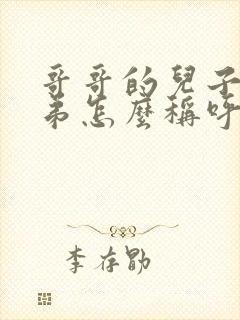 哥哥的兒子
弟怎麼稱呼
李存勖